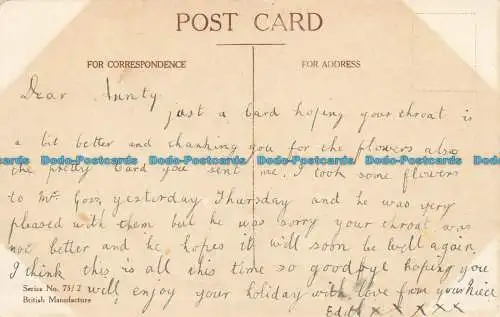 POST CARD
FOR CORRESPONDENCE
FOR ADDRESS
Dear Aunty,
just a Card hoping your throat is
a bit better and thanking you for the flowers also
the pretty Card you sent me. I took some flowers
to Mr. Goss, yesterday Thursday and he was very
pleased with them but he was sorry your throat was
not better and he hopes it will soon be well again.
I think this is all this time so goodbye hoping you
will enjoy your holiday with love from your Niece
Edith x x x x x
Series No. 75/2
British Manufacture
Dodo-Postcards Dodo-Postcards Dodo-Postcards Dodo-Postcards
Dodo-Postcards Dodo-Postcards Dodo-Postcards Dodo-Postcards